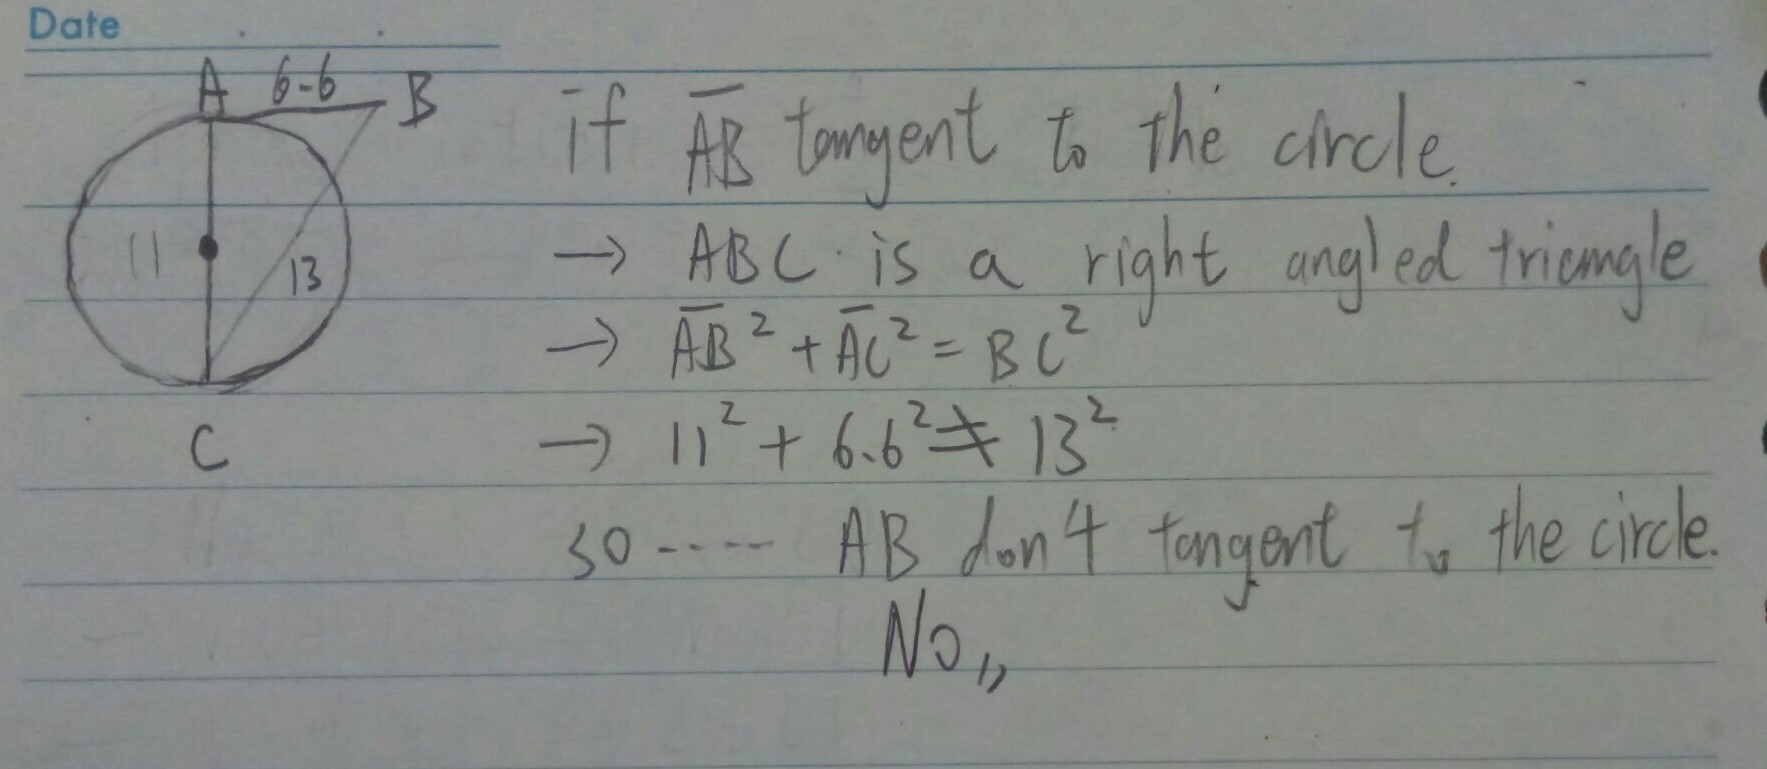 Date
A 6.6 B
11
13
C
if A̅B̅ tangent to the circle.
→ ABC is a right angled triangle
→ A̅B̅² + A̅C̅² = BC²
→ 11² + 6.6² ≠ 13²
so ---- AB don't tangent to the circle.
No,,